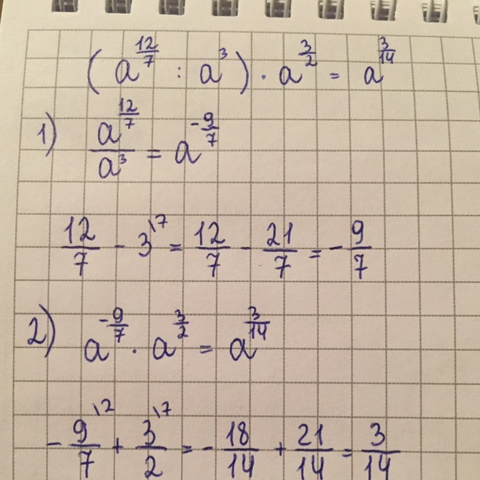 (a^{12/7} : a^3) · a^{3/2} = a^{3/14}
1) a^{12/7}/a^3 = a^{-9/7}
12/7 - 3^{\7} = 12/7 - 21/7 = -9/7
2) a^{-9/7} · a^{3/2} = a^{3/14}
-9^{\2}/7 + 3^{\7}/2 = -18/14 + 21/14 = 3/14